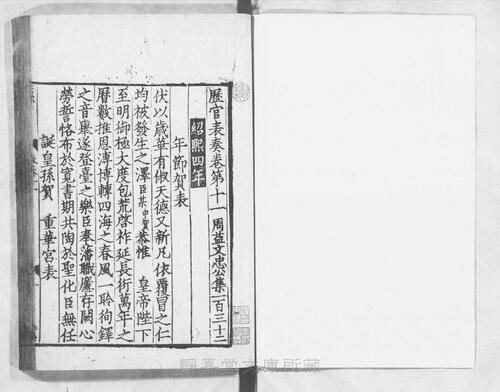 歴官表奏卷第十一　周益文忠公集一百三十二
紹熙四年
年節賀表
伏以歳華有俶天德又新凡依覆冒之仁
均被發生之澤臣某中賀恭惟　皇帝陛下
至明御極大度包荒啓祚延長衍萬年之
曆數推恩溥博轉四海之春風一聆徇鐸
之音舉遂登臺之樂臣奉藩職廑存闕心
勞誓恪布於寬書期共陶於聖化臣無任
誕皇孫賀　重華宮表
靜嘉堂文庫所藏